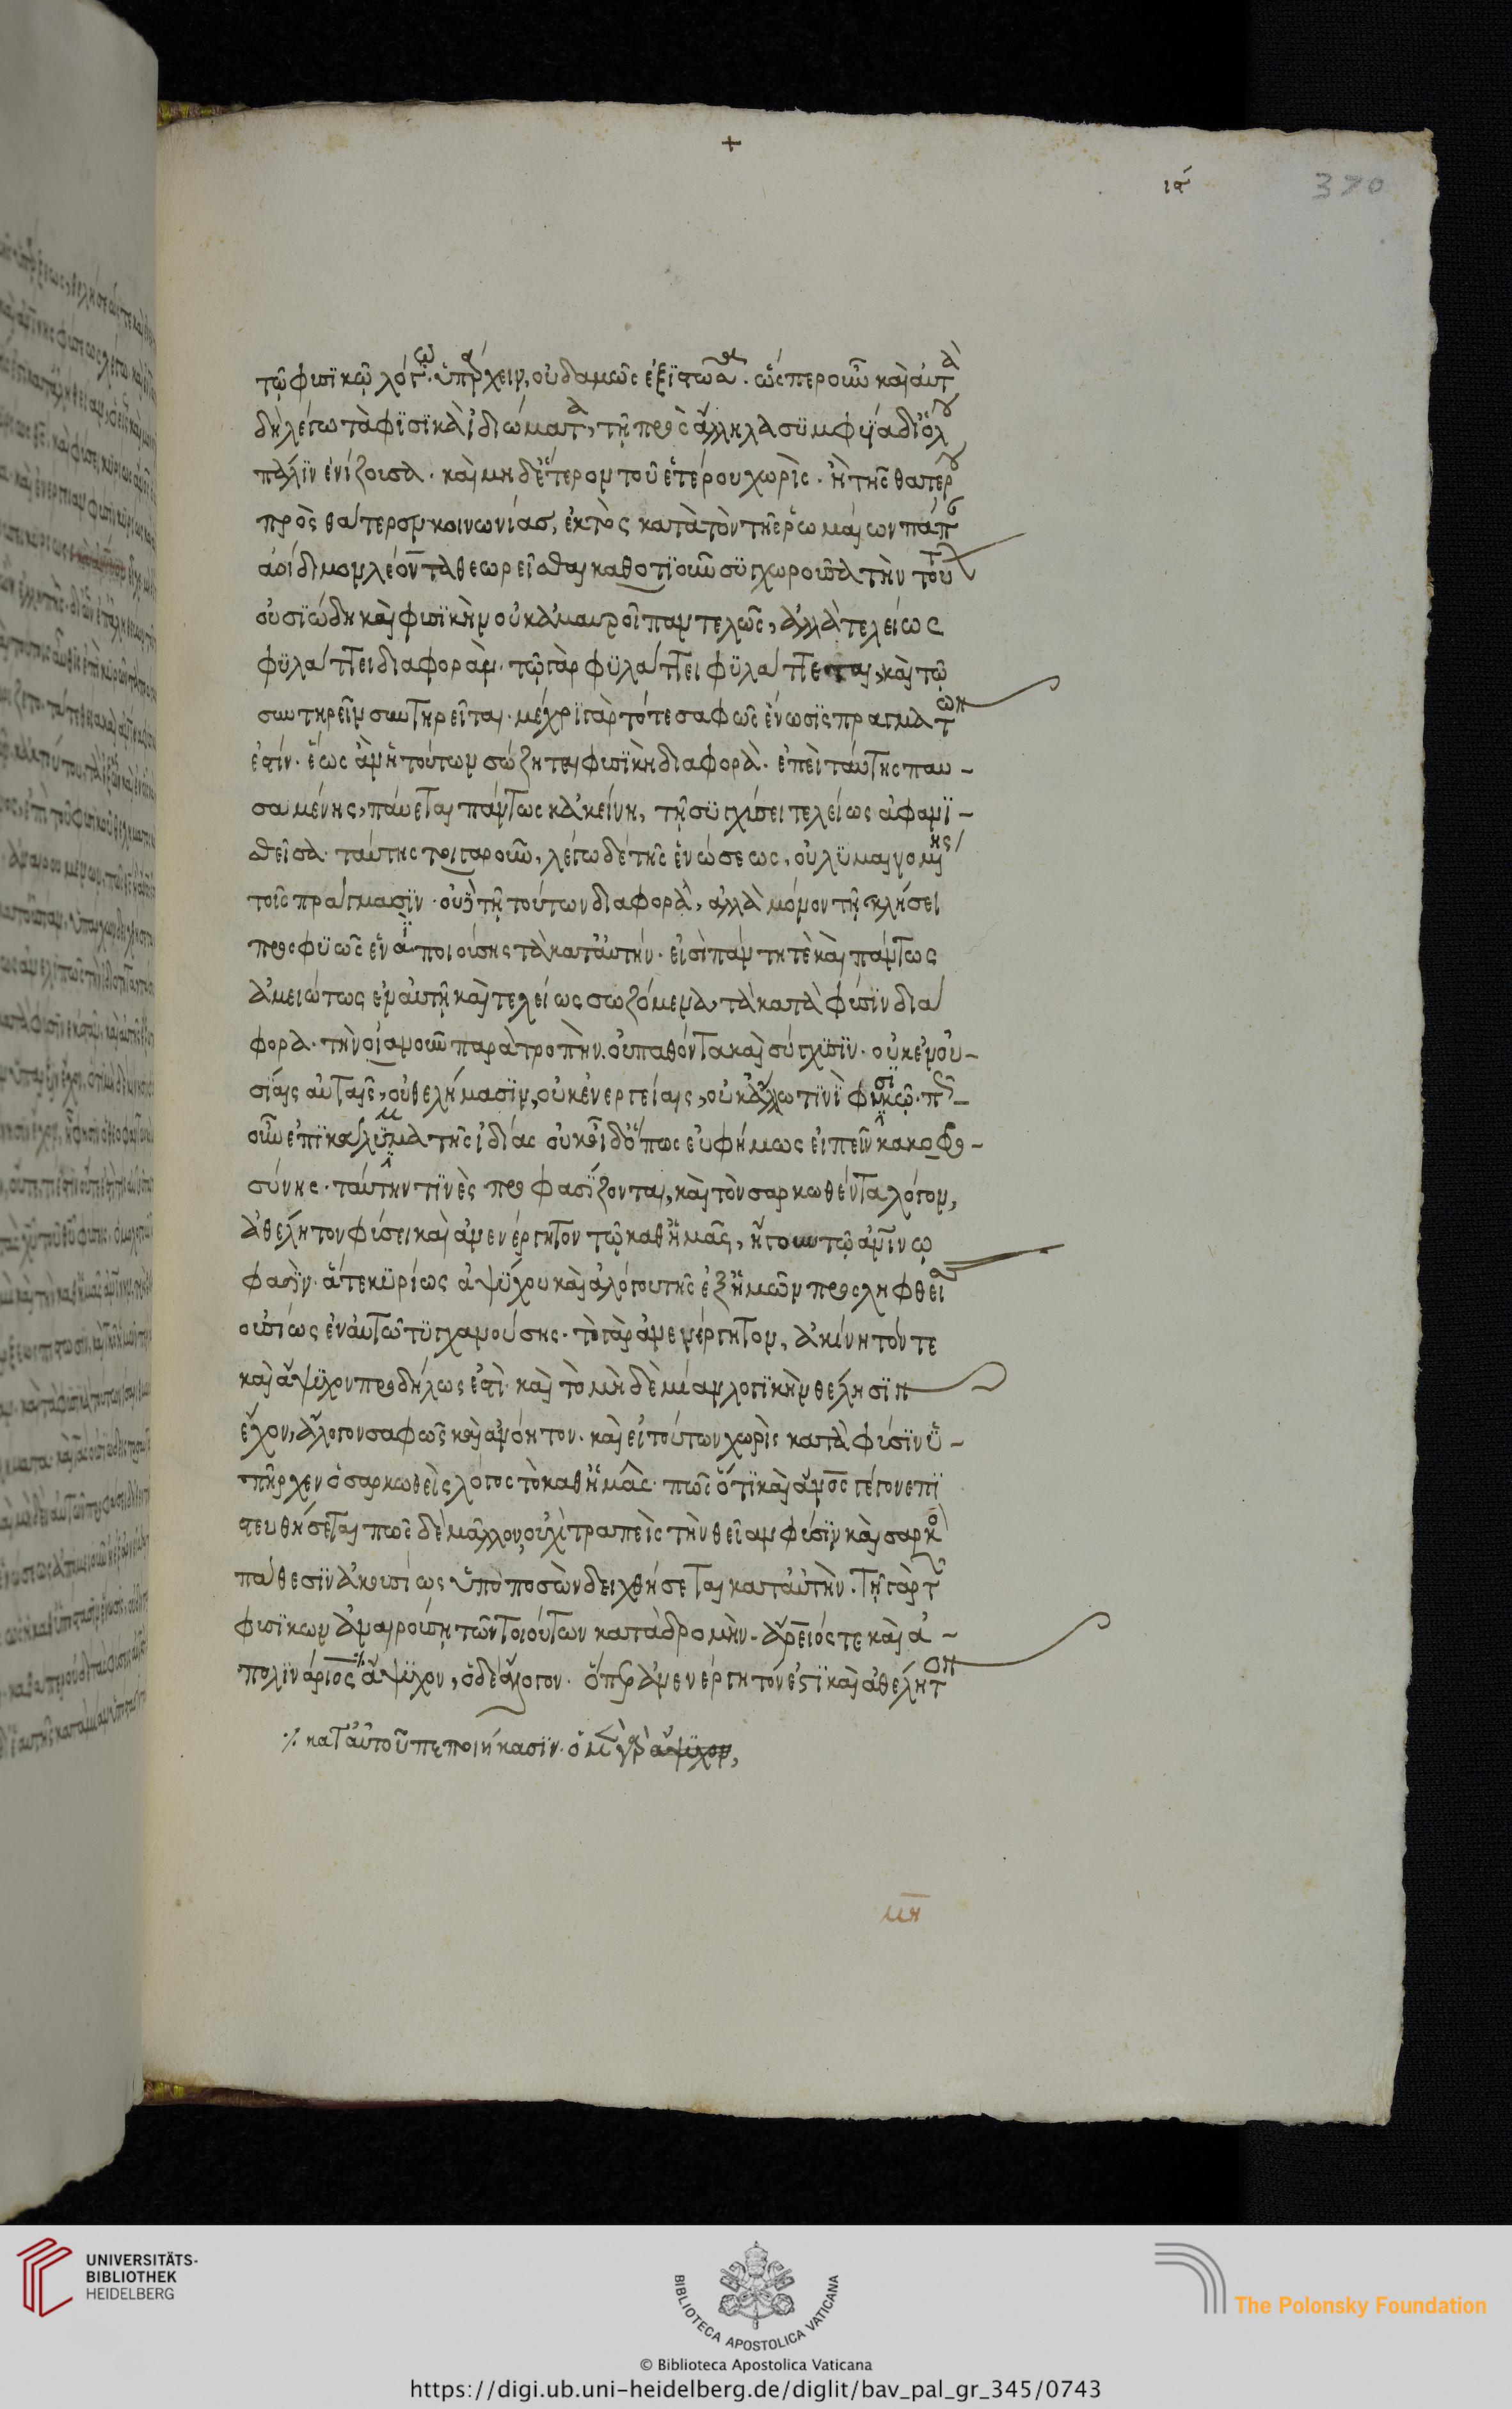 +
ια
370
τῷ φυσϊκῷ λόγω. ὑπάρχειν, οὐδαμῶς ἐξϊστῶσα. ὥσπερ οὖν καὶ αὐτὰ
δὴ λέγω τὰ φϋσϊκὰ ἰδιώματα, τῇ πρὸς ἄλληλα συμφυΐα διόλου
πάλϊν ἑνίζουσα. καὶ μὴ δέτερον τοῦ ἑτέρου χωρὶς. ἢ τῆς θατέρου
πρὸς θάτερον κοινωνίας, ἐκτὸς κατὰ τὸν τῆς ῥωμαίων πάπ
ἀοίδιμον λέοντα θεωρεῖσθαι καθοτϊοῦν συγχωροῦσα τὴν τού
οὐσϊώδη καὶ φυσϊκὴν οὐκ ἀμαυροῖ παντελῶς, ἀλλὰ τελείως
φϋλάττει διαφορὰν. τῷ γὰρ φϋλάττει φϋλάττεται, καὶ τῷ
συντηρεῖν συντηρεῖται. μέχρϊ γὰρ τότε σαφῶς ἕνωσϊς πραγμάτων
ἐστίν. ἕως ἂν ἡ τούτων σώζηται φυσϊκὴ διαφορὰ. ἐπεὶ ταύτης παυ-
σαμένης, παύεται πάντως κἀκείνη, τῇ συγχύσει τελείως ἀφανϊ-
σθεῖσα. ταύτης τοιγαροῦν, λέγω δὲ τῆς ἑνώσεως, οὐ λϋμαινομένης
τοῖς πράγμασϊν. οὐδὲ τῇ τούτων διαφορᾶ, ἀλλὰ μόνον τῇ κλήσει
προσφϋῶς ἓν ἀποιούσης τὰ κατ' αὐτήν. εἰσὶ πάντη τὲ καὶ πάντως
ἀμειώτως ἐν αὐτῇ καὶ τελείως σωζόμενα, τὰ κατὰ φύσϊν διά
φορα. τὴν οἱανοῦν παρατροπὴν. οὐ παθόντα καὶ σύγχϋσϊν. οὐκ ἐν οὐ-
σίαις αὐταῖς, οὐ θελήμασϊν, οὐκ ἐνεργείαις, οὐκ ἄλλω τϊνὶ φυσϊκῷ.
οὖν ἐπϊκάλϋμμα τῆς ἰδίας οὐκ οἶδ' ὅπως εὐφήμως εἰπεῖν κακοφρο-
σύνης. ταύτην τϊνὲς προφασΐζονται, καὶ τὸν σαρκωθέντα λόγον,
ἀθέλητον φύσει καὶ ἀνενέργητον τῷ καθ' ἡμᾶς, ἤγουν τῷ ἀμείνω
φασὶν. ἅτε κϋρίως ἀψϋχου καὶ ἀλόγου τῆς ἐξ ἡμῶν προσληφθεί
οὐσίως ἐν αὐτῶ τϋγχανούσης. τὸ γὰρ ἀνενέργητον, ἀκίνητόν τε
καὶ ἄψϋχον προδήλως ἐστὶ. καὶ τὸ μὴ δὲ μίαν λογϊκὴν θέλησϊν
ἔχον, ἄλογον σαφῶς καὶ ἀνόητον. καὶ εἰ τούτων χωρὶς κατὰ φύσϊν ὑ-
πῆρχεν ὁ σαρκωθεὶς λόγος τὸ καθ' ἡμᾶς. πῶς ὅτϊ καὶ ἄνος γέγονε πϊ
στευθήσεται πῶς δὲ μᾶλλον, οὐχὶ τραπεὶς τὴν θείαν φύσϊν καὶ σαρκὸ
πάθεσϊν ἀκουσίως ὑποποσὼν δειχθήσεται κατ' αὐτὴν. τῇ γὰρ
φυσϊκων ἀναιρούση τῶν τοιούτων καταδρομὴν. ἄρειός τε καὶ ἀ-
πολϊνάριος ⁒ ἄψϋχον, ὁ δὲ ἄλογον. ὅπερ ἀνενέργητόν ἐστϊ καὶ ἀθέλητον
⁒ κατ' αὐτοῦ πεποιήκασϊν. ὁ μὲν γὰρ ἄψϋχον,
μη
UNIVERSITÄTS-
BIBLIOTHEK
HEIDELBERG
BIBLIOTECA APOSTOLICA VATICANA
The Polonsky Foundation
© Biblioteca Apostolica Vaticana
https://digi.ub.uni-heidelberg.de/diglit/bav_pal_gr_345/0743